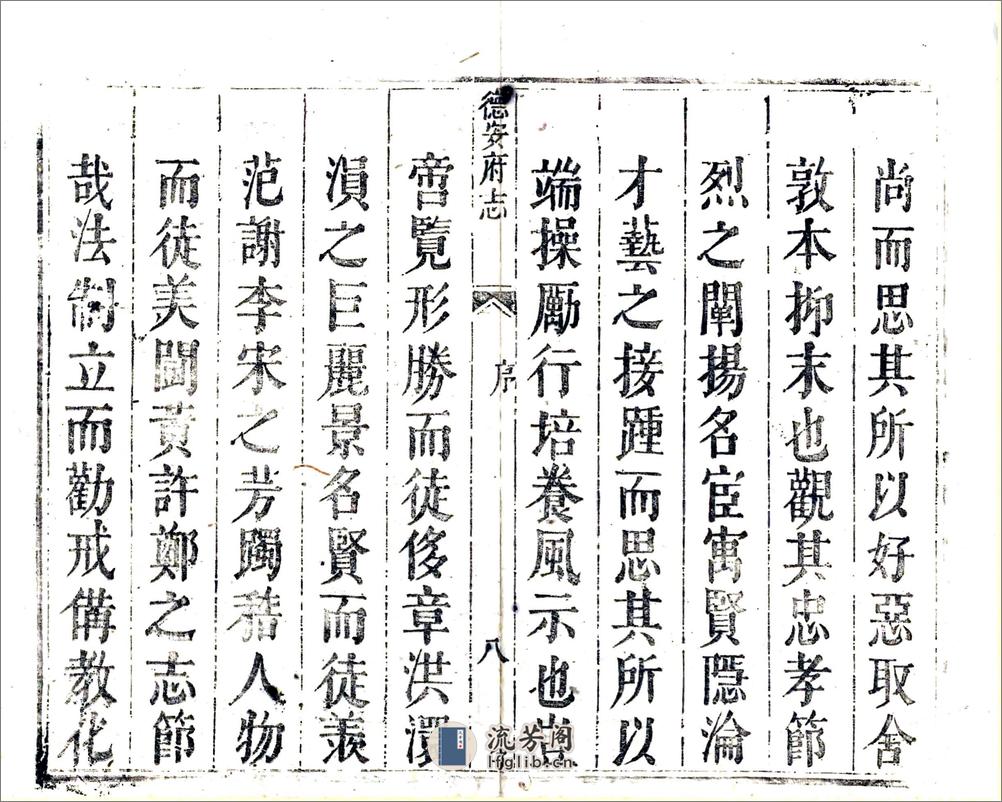 尚而思其所以好惡取舍
敦本抑末也觀其忠孝節
烈之闡揚名宦寓賢隱淪
才藝之接踵而思其所以
端操勵行培養風示也豈
德安府志 序 八
啻覽形勝而徒侈章洪澴
溳之巨麗景名賢而徒羨
范謝李宋之芳躅稽人物
而徒美闘黃許鄭之志節
哉法制立而勸戒備教化
流芳阁
lfglib.cn